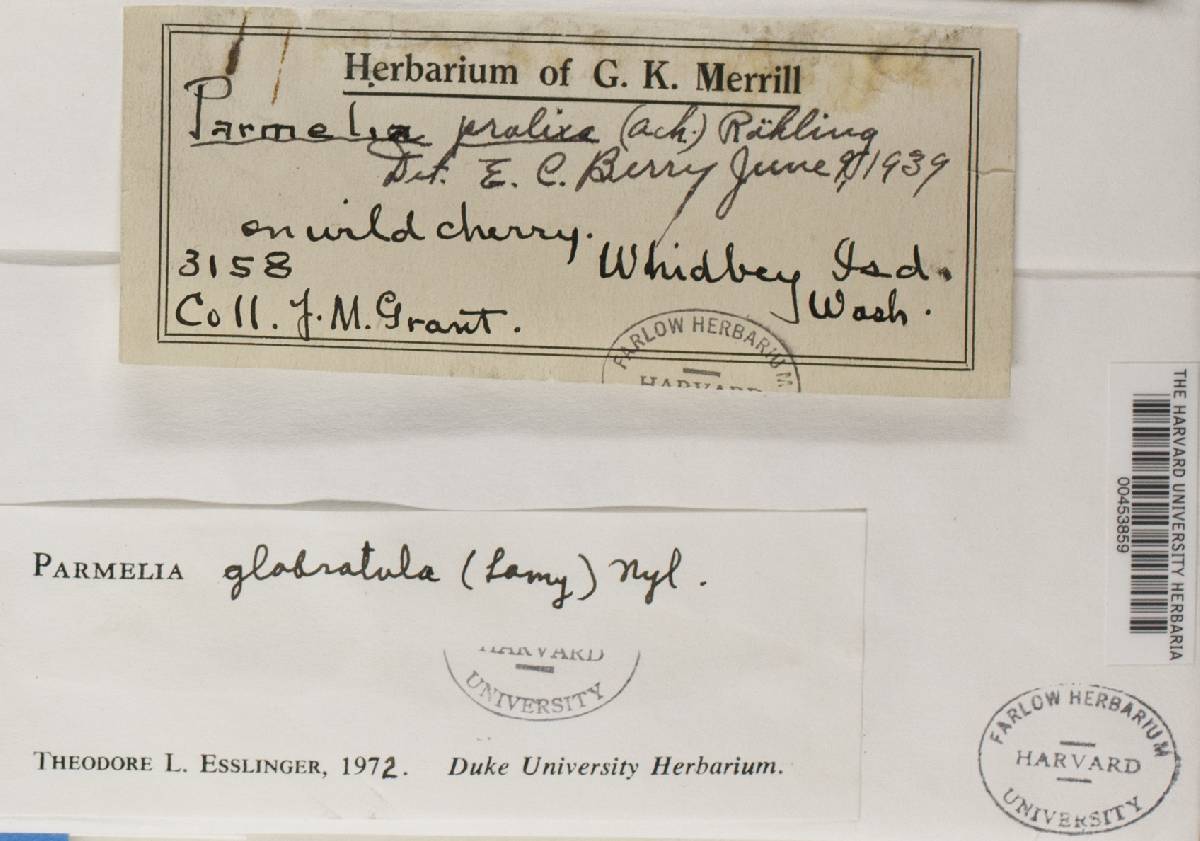 Herbarium of G. K. Merrill
Parmelia prolixa (Ach.) Röhling
Det. E. C. Berry June 1939
on wild cherry.
3158 Whidbey Isd.
Coll. J. M. Grant. Wash.
FARLOW HERBARIUM
HARVARD
THE HARVARD UNIVERSITY HERBARIA
00453859
PARMELIA glabratula (Lamy) Nyl.
HARVARD
UNIVERSITY
THEODORE L. ESSLINGER, 1972. Duke University Herbarium.
FARLOW HERBARIUM
HARVARD
UNIVERSITY